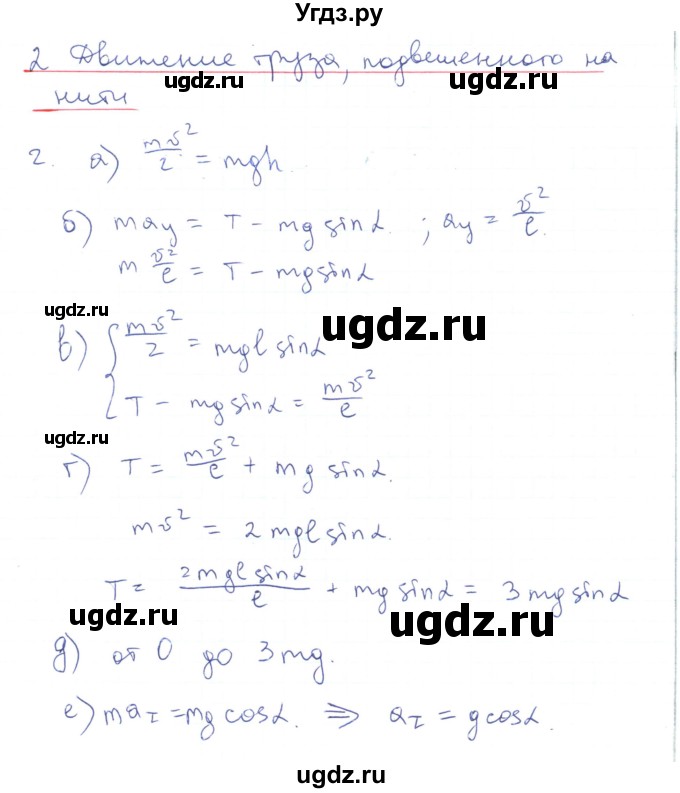 Угдз.ру
2 Движение груза, подвешенного на
ugdz.ru
ugdz.ru
нити
2. а) mv²/2 = mgh.
б) ma_y = T - mg sin α ; a_y = v²/ℓ.
m v²/ℓ = T - mg sin α
ugdz.ru
ugdz.ru
в) { mv²/2 = mgℓ sin α
T - mg sin α = mv²/ℓ
ugdz.ru
г) T = mv²/ℓ + mg sin α.
mv² = 2mgℓ sin α.
T = 2mgℓ sin α/ℓ + mg sin α = 3mg sin α
ugdz.ru
ugdz.ru
д) от 0 до 3mg.
е) ma_τ = mg cos α. ⇒ a_τ = g cos α.
ugdz.ru